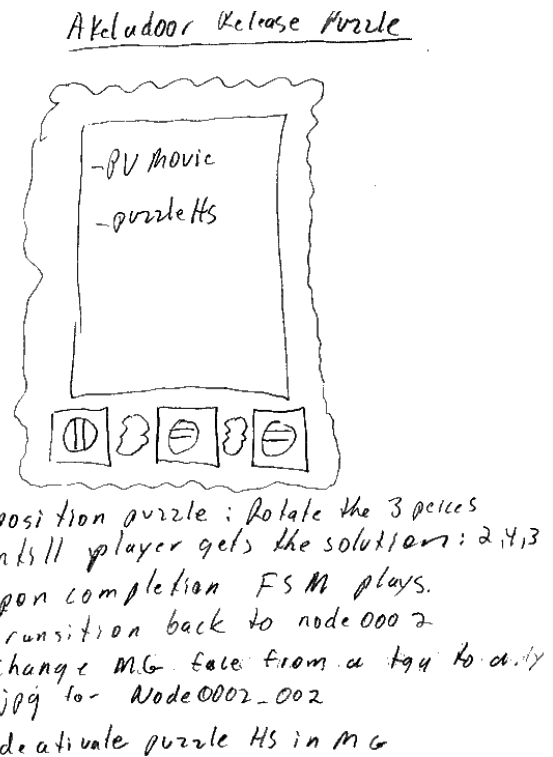 Akeladoor Release Puzzle
-PV Movie
-puzzle HS
position puzzle : Rotate the 3 peices
ntill player gets the solution : 2,4,3
pon completion FSM plays.
ransition back to node 0002
hange MG face from a tga to a
jpg for Node0002_002
deativate puzzle HS in MG